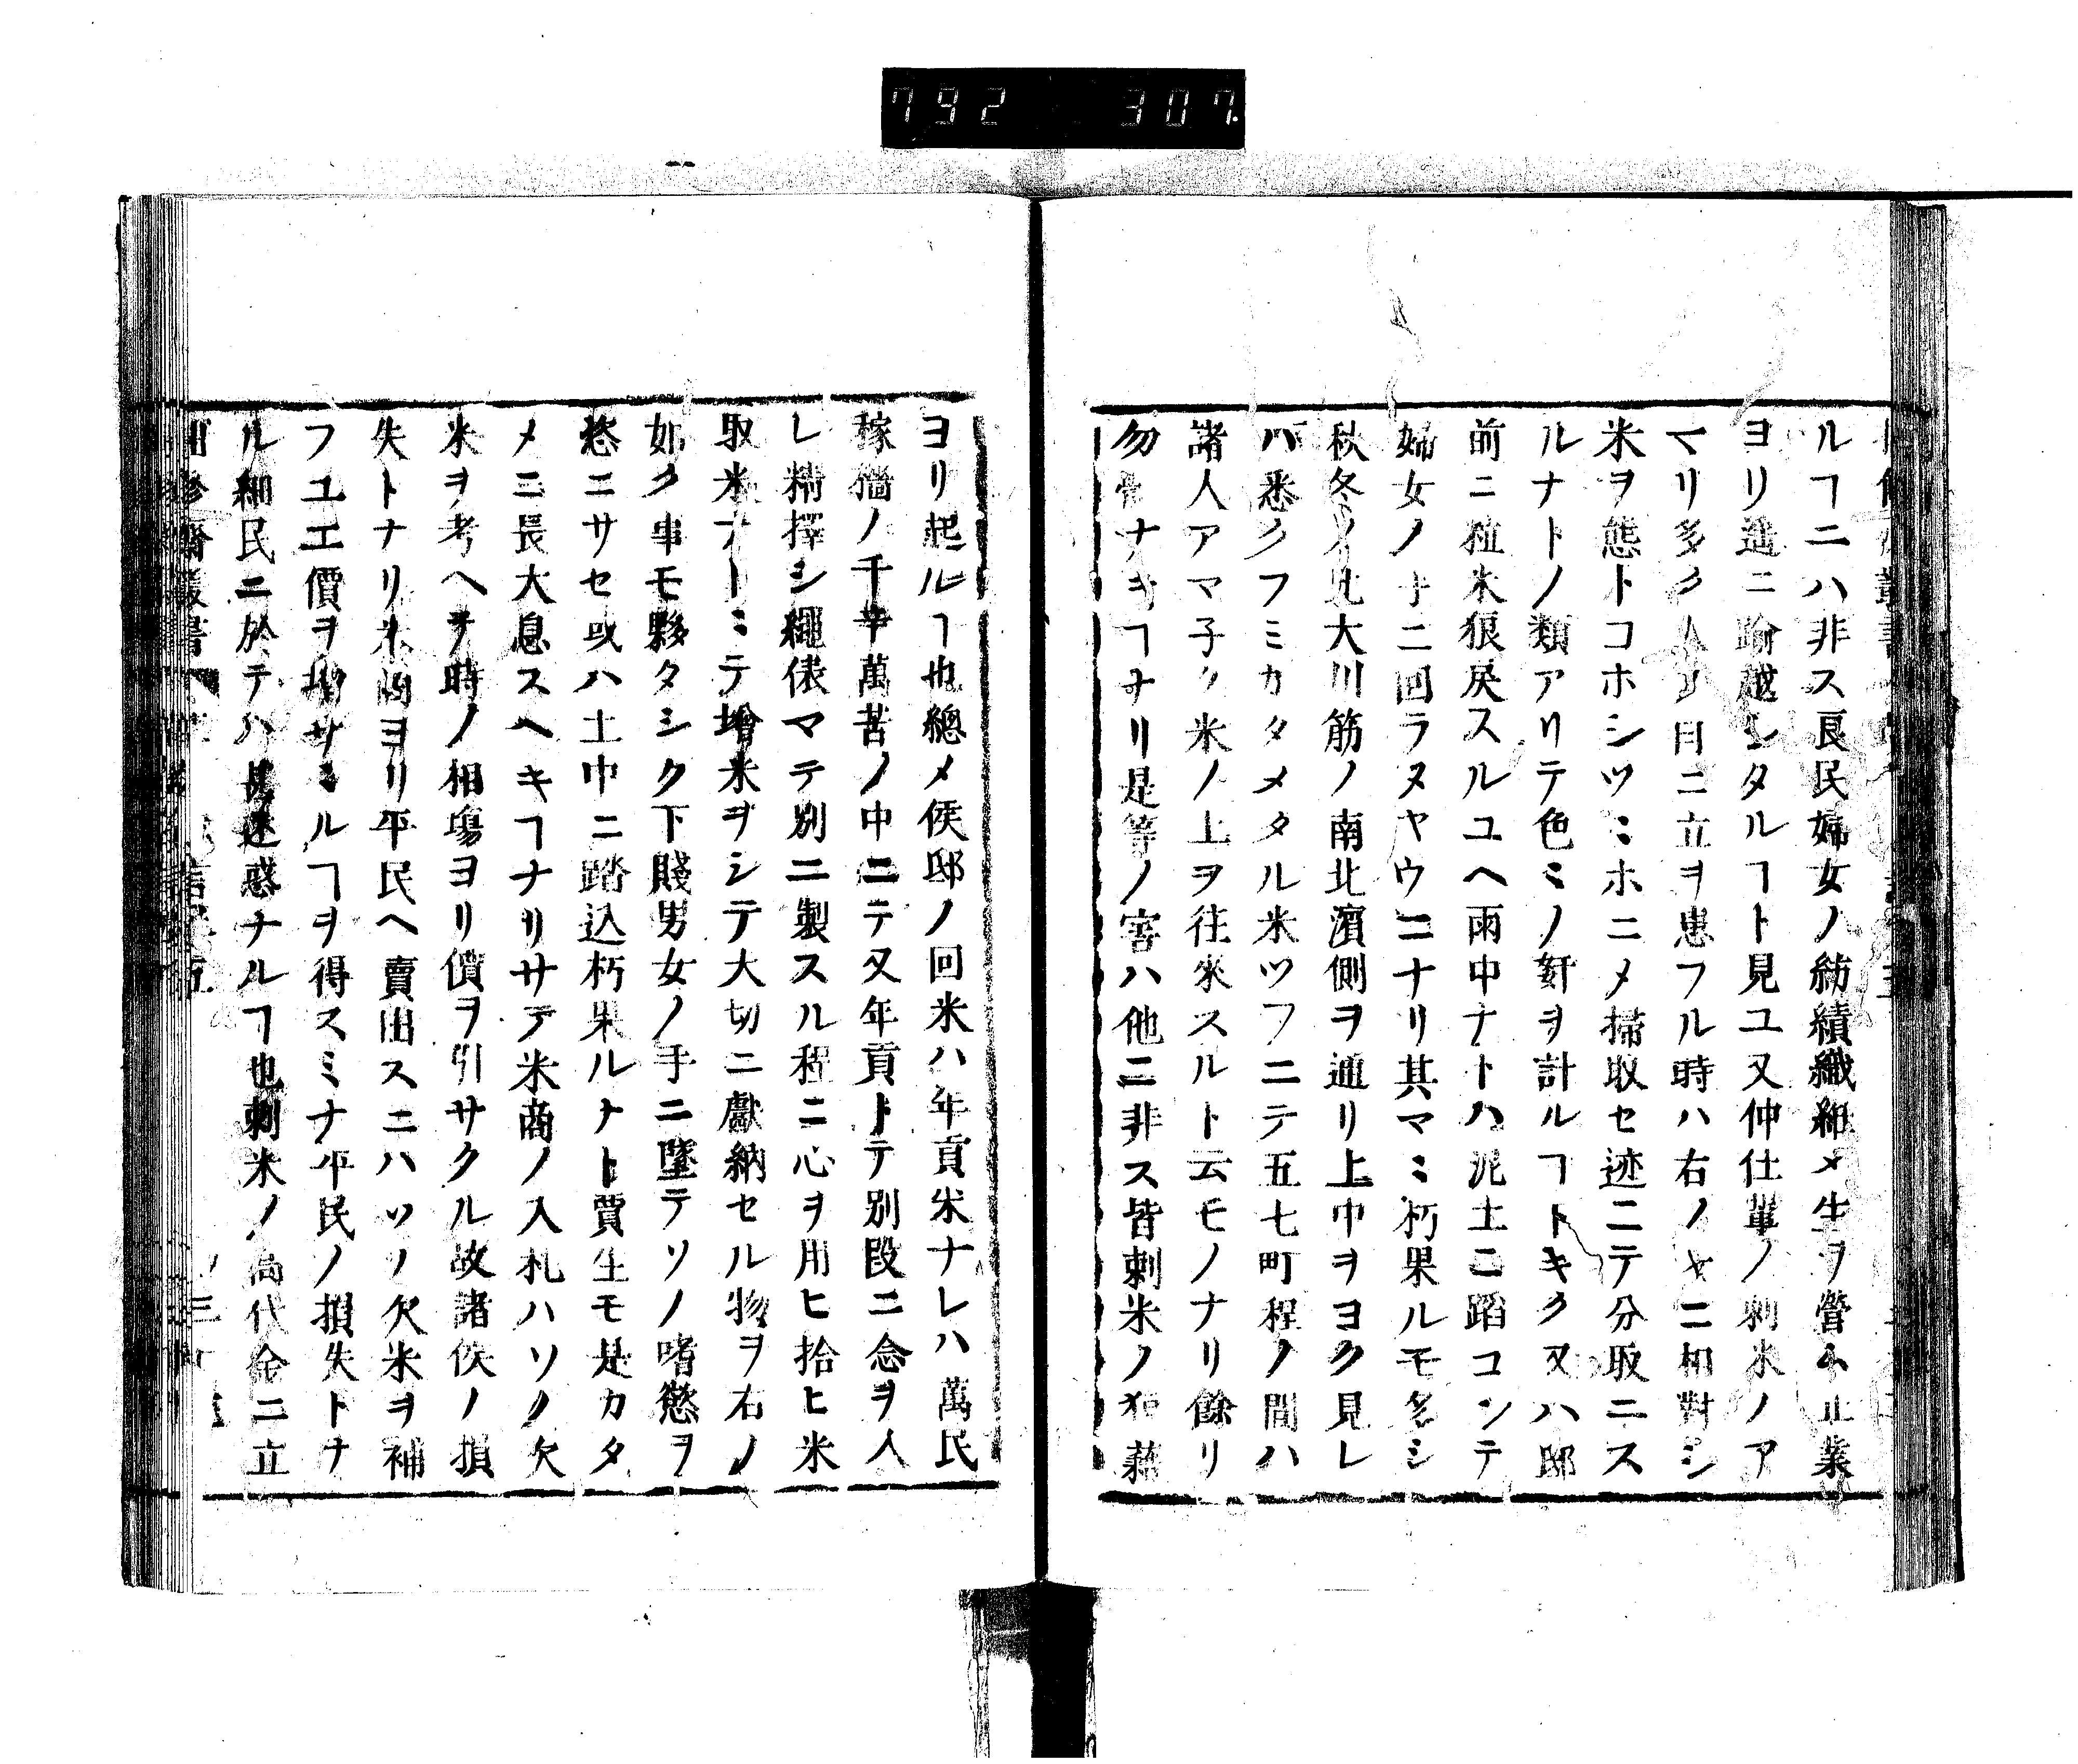 792 307.
ルヿニハ非ス良民婦女ノ紡績織紝メ生ヲ營ム正業
ヨリ遥ニ踰越シタルヿト見ユ又仲仕輩ノ刺米ノア
マリ多ク人ノ目ニ立ヲ患フル時ハ右ノヤニ相對シ
米ヲ態トコホシツヽホニメ掃取セ迹ニテ分取ニス
ルナトノ類アリテ色〻ノ姧ヲ計ルヿトキク又ハ邸
前ニ粒米狼戻スルユヘ雨中ナトハ泥土ニ蹈コンテ
婦女ノ手ニ回ラヌヤウニナリ其マヽ朽果ルモ多シ
秋冬ノ比大川筋ノ南北濱側ヲ通リ上中ヲヨク見レ
ハ悉クフミカタメタル米ツフニテ五七町程ノ間ハ
諸人アマ子ク米ノ上ヲ往來スルト云モノナリ餘リ
勿體ナキヿナリ是等ノ害ハ他ニ非ス皆刺米ノ狼藉
ヨリ起ルヿ也總メ侯邸ノ回米ハ年貢米ナレハ萬民
稼穡ノ千辛萬苦ノ中ニテ又年貢トテ別段ニ念ヲ入
レ精擇シ繩俵マテ別ニ製スル程ニ心ヲ用ヒ拾ヒ米
取米ナトミテ増米ヲシテ大切ニ獻納セル物ヲ右ノ
如ク事モ夥タシク下賤男女ノ手ニ墜テソノ嗜慾ヲ
慾ニサセ或ハ土中ニ踏込朽果ルナト賈生モ是カタ
メニ長大息スヘキヿナリサテ米商ノ入札ハソノ欠
米ヲ考ヘテ時ノ相塲ヨリ價ヲ引サクル故諸侯ノ損
失トナリ米商ヨリ平民ヘ賣出スニハソノ欠米ヲ補
フユエ價ヲ増サヽルヿヲ得スミナ平民ノ損失トナ
ル細民ニ於テハ甚迷惑ナルヿ也刺米ノ高代金ニ立